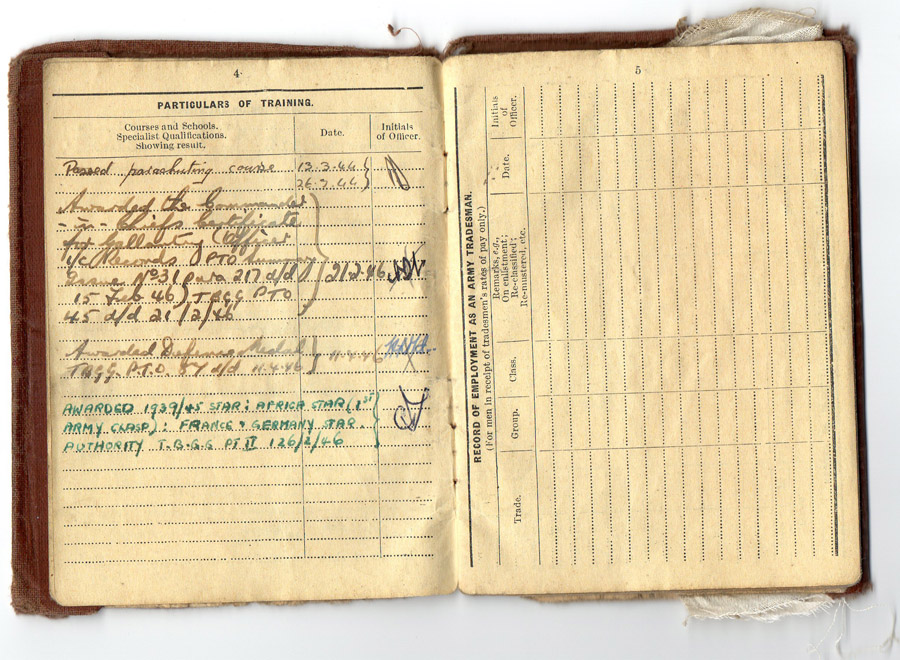 4
PARTICULARS OF TRAINING.
Courses and Schools.
Specialist Qualifications.
Showing result.
Date.
Initials
of Officer.
Passed parachuting course 13.3.44
26.3.44
Awarded the Commander
-in- Chiefs Certificate
for Gallantry (Officer
i/c Records PTO
Issue No 31 para 217 d/d 21/2/46
15 Feb 46) T.B.G.G PTO
45 d/d 21/2/46
Awarded Defence Medal 11.4.46
T.B.G.G. P.T.O 87 d/d 11.4.46
AWARDED 1939/45 STAR: AFRICA STAR (1ST
ARMY CLASP): FRANCE & GERMANY STAR.
AUTHORITY T.B.G.G PT II 126/2/46
5
RECORD OF EMPLOYMENT AS AN ARMY TRADESMAN.
(For men in receipt of tradesmen's rates of pay only.)
Trade.
Group.
Class.
Remarks, e.g.,
On enlistment;
Re-classified;
Re-mustered, etc.
Date.
Initials
of
Officer.